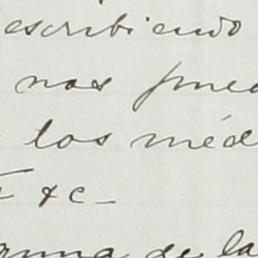 escribiendo
nos pued
los méd
&c-
de la